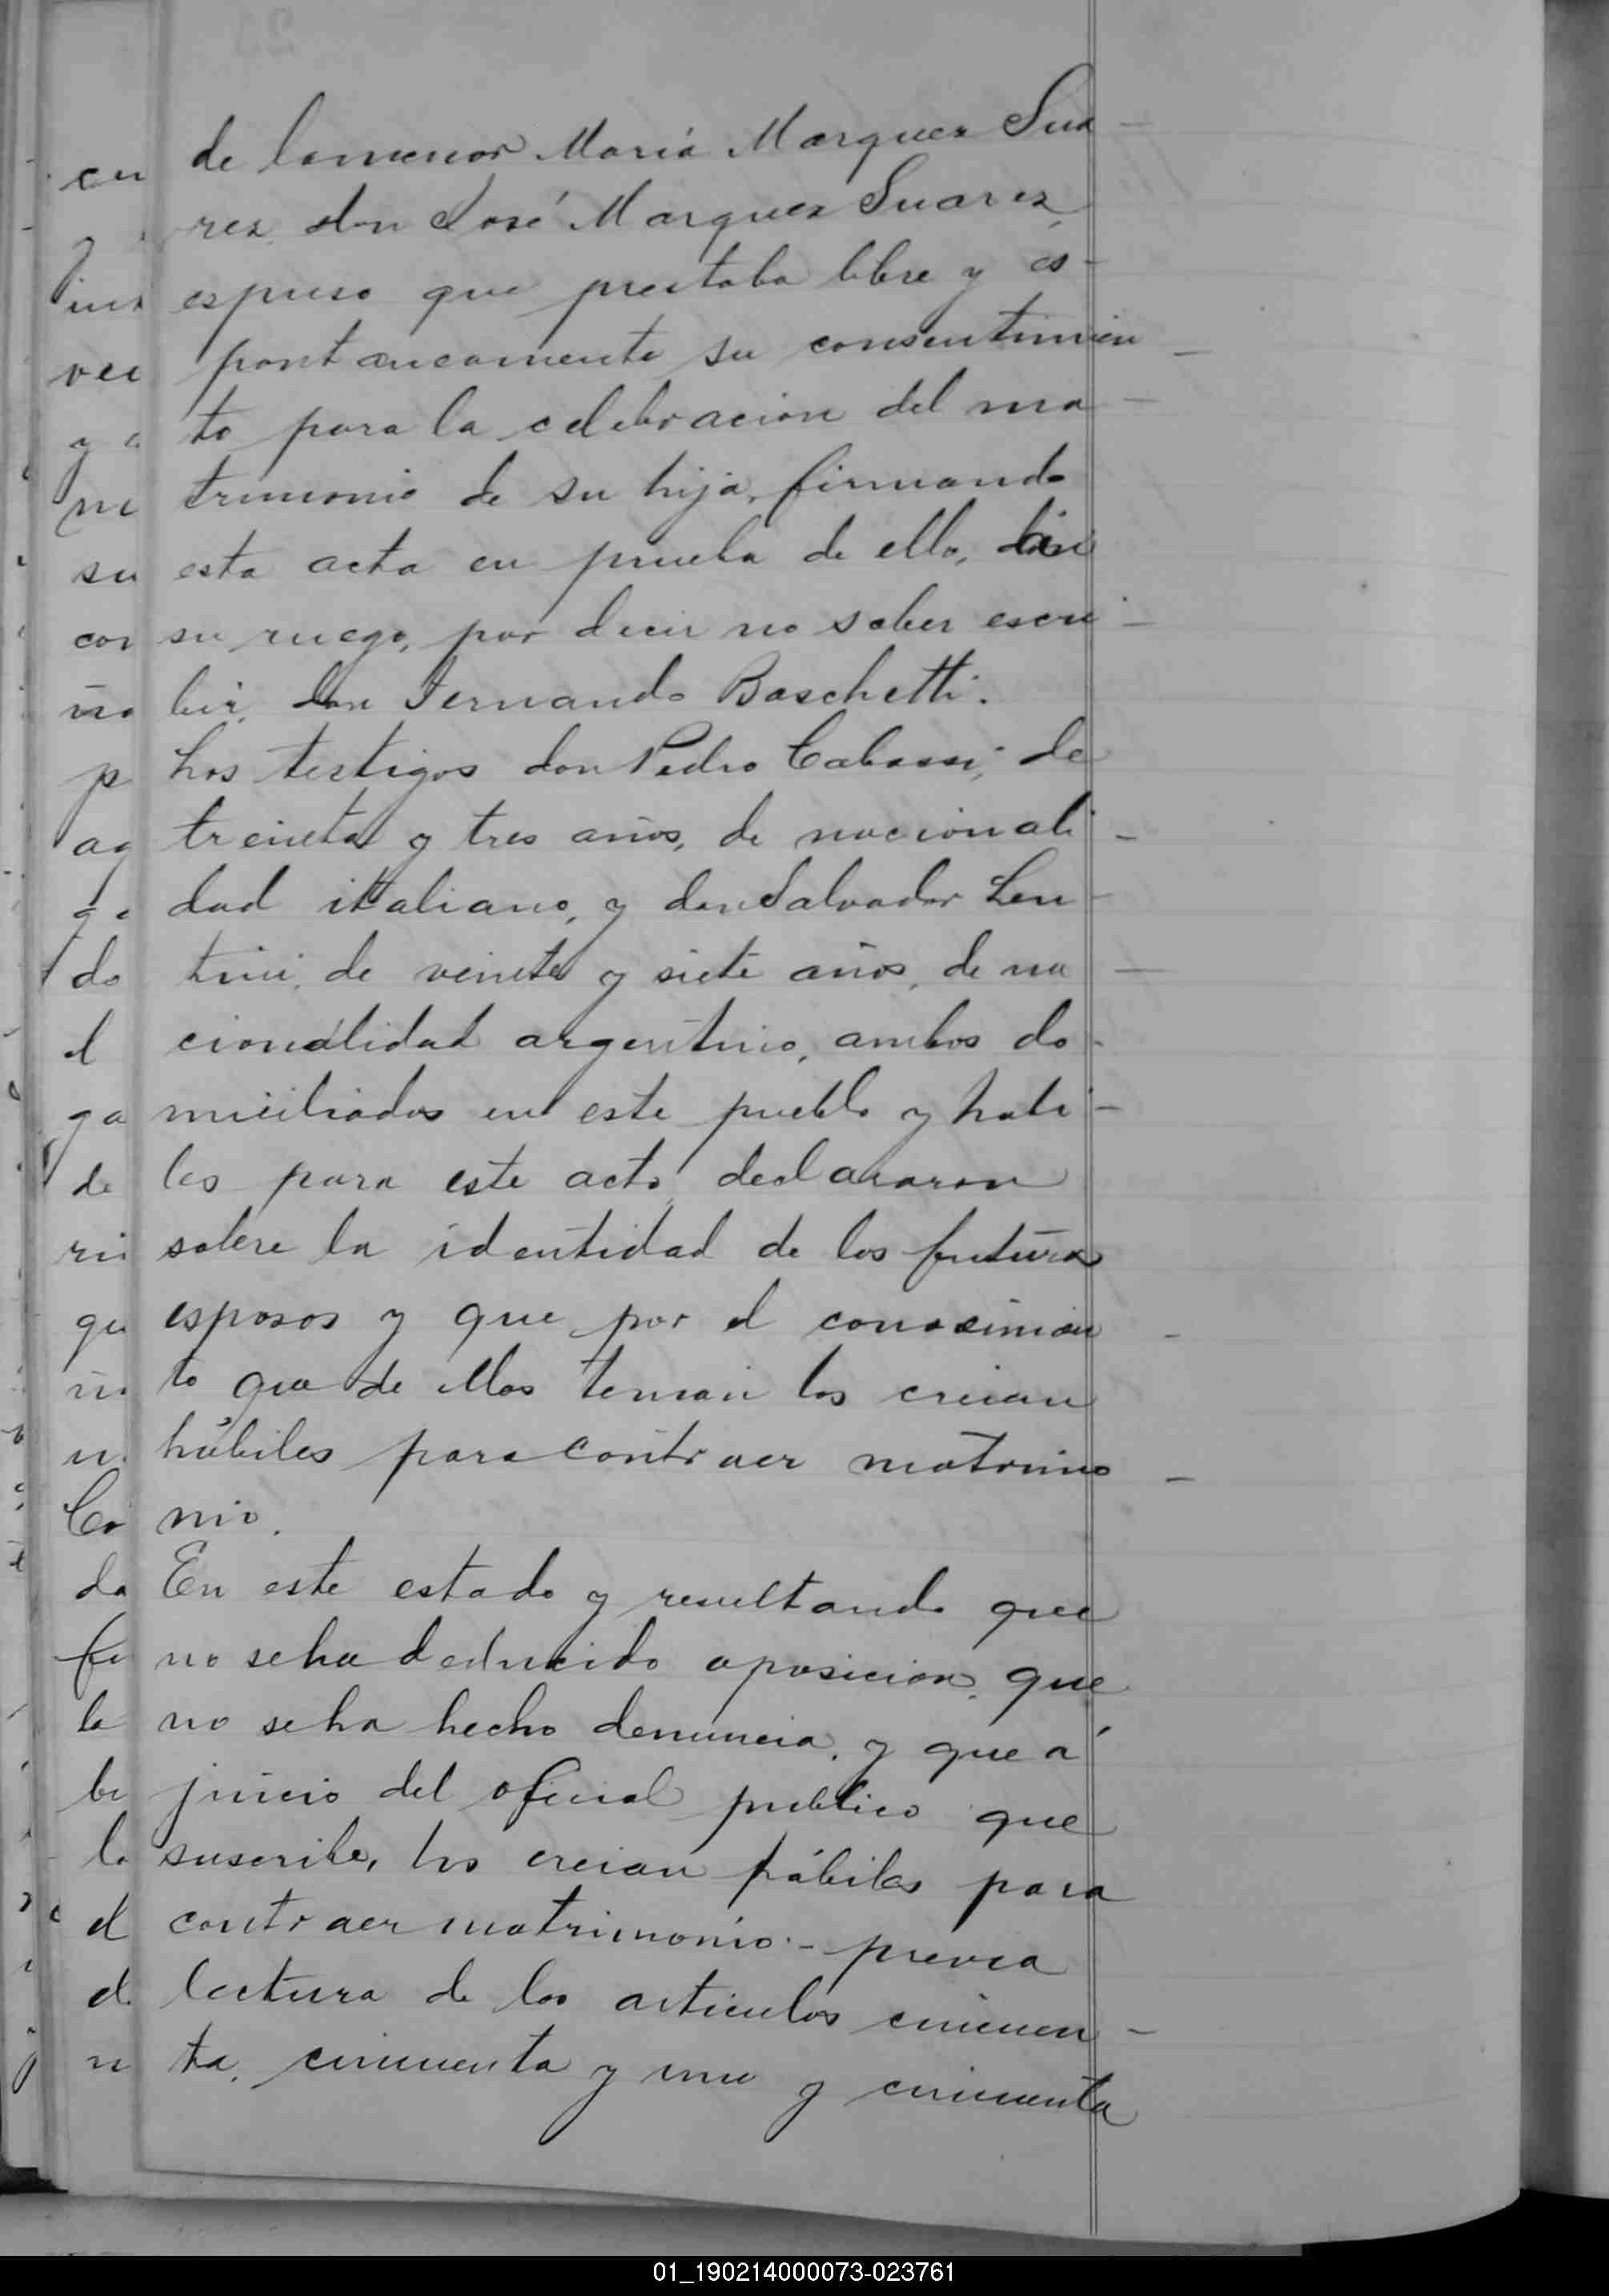 de la menor María Marquez Sua
rez, don José Marquez Suarez,
espuso que prestaba libre y es-
pontaneamente su consentimien
to para la celebracion del ma
trimonio de su hija, firmando
esta acta en prueba de ello,
su ruego, por decir no saber escri
bir, don Fernando Boschetti.
Los testigos don Pedro Cabassi, de
treinta y tres años, de nacionali
dad italiano, y don Salvador Len
tini, de veinte y siete años, de na
cionalidad argentino, ambos do-
miciliados en este pueblo y habi-
les para este acto, declararon
sobre la identidad de los futuros
esposos y que por el conocimien
to que de ellos tenian los creian
hábiles para contraer matrimo
nio.
En este estado y resultando que
no se ha deducido oposicion, que
no se ha hecho denuncia, y que á
juicio del oficial publico que
suscribe, los creian hábiles para
contraer matrimonio.- previa
lectura de los articulos cincuen
ta, cincuenta y uno y cincuenta
01_190214000073-023761